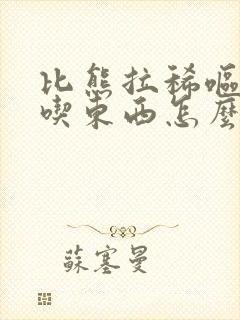 比熊拉稀嘔
喫東西怎麼
蘇塞曼